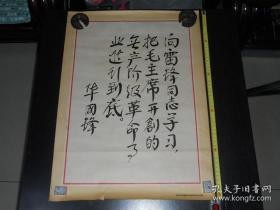 向雷锋同志学习，
把毛主席开創的
无产阶级革命事
业进行到底。
华国锋
孔夫子旧书网